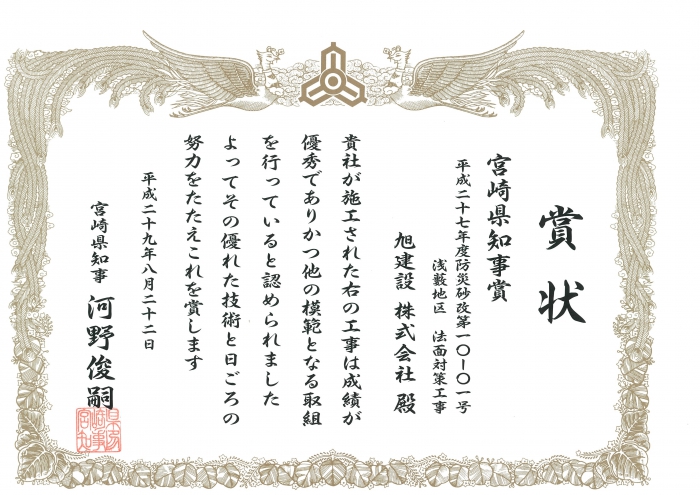 賞状
宮崎県知事賞
平成二十七年度防災砂改第一〇ー〇一号
浅藪地区 法面対策工事
旭建設 株式会社 殿
貴社が施工された右の工事は成績が
優秀でありかつ他の模範となる取組
を行っていると認められました
よってその優れた技術と日ごろの
努力をたたえこれを賞します
平成二十九年八月二十二日
宮崎県知事 河野俊嗣